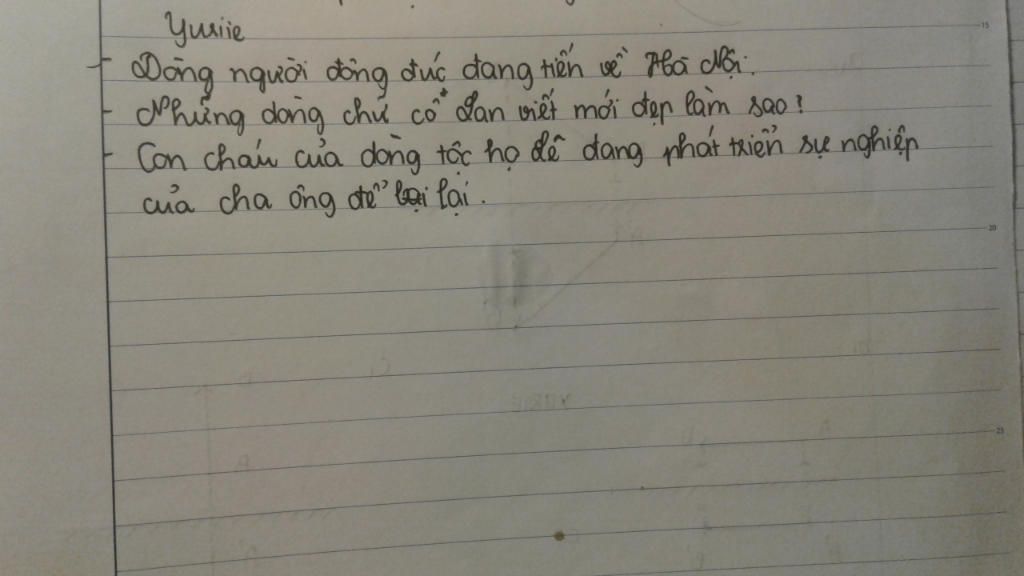 Yuriie
- Dòng người đông đúc đang tiến về Hà Nội.
- Những dòng chữ cô Đan viết mới đẹp làm sao!
- Con cháu của dòng tộc họ Lê đang phát triển sự nghiệp
của cha ông để lại.
15
20
25